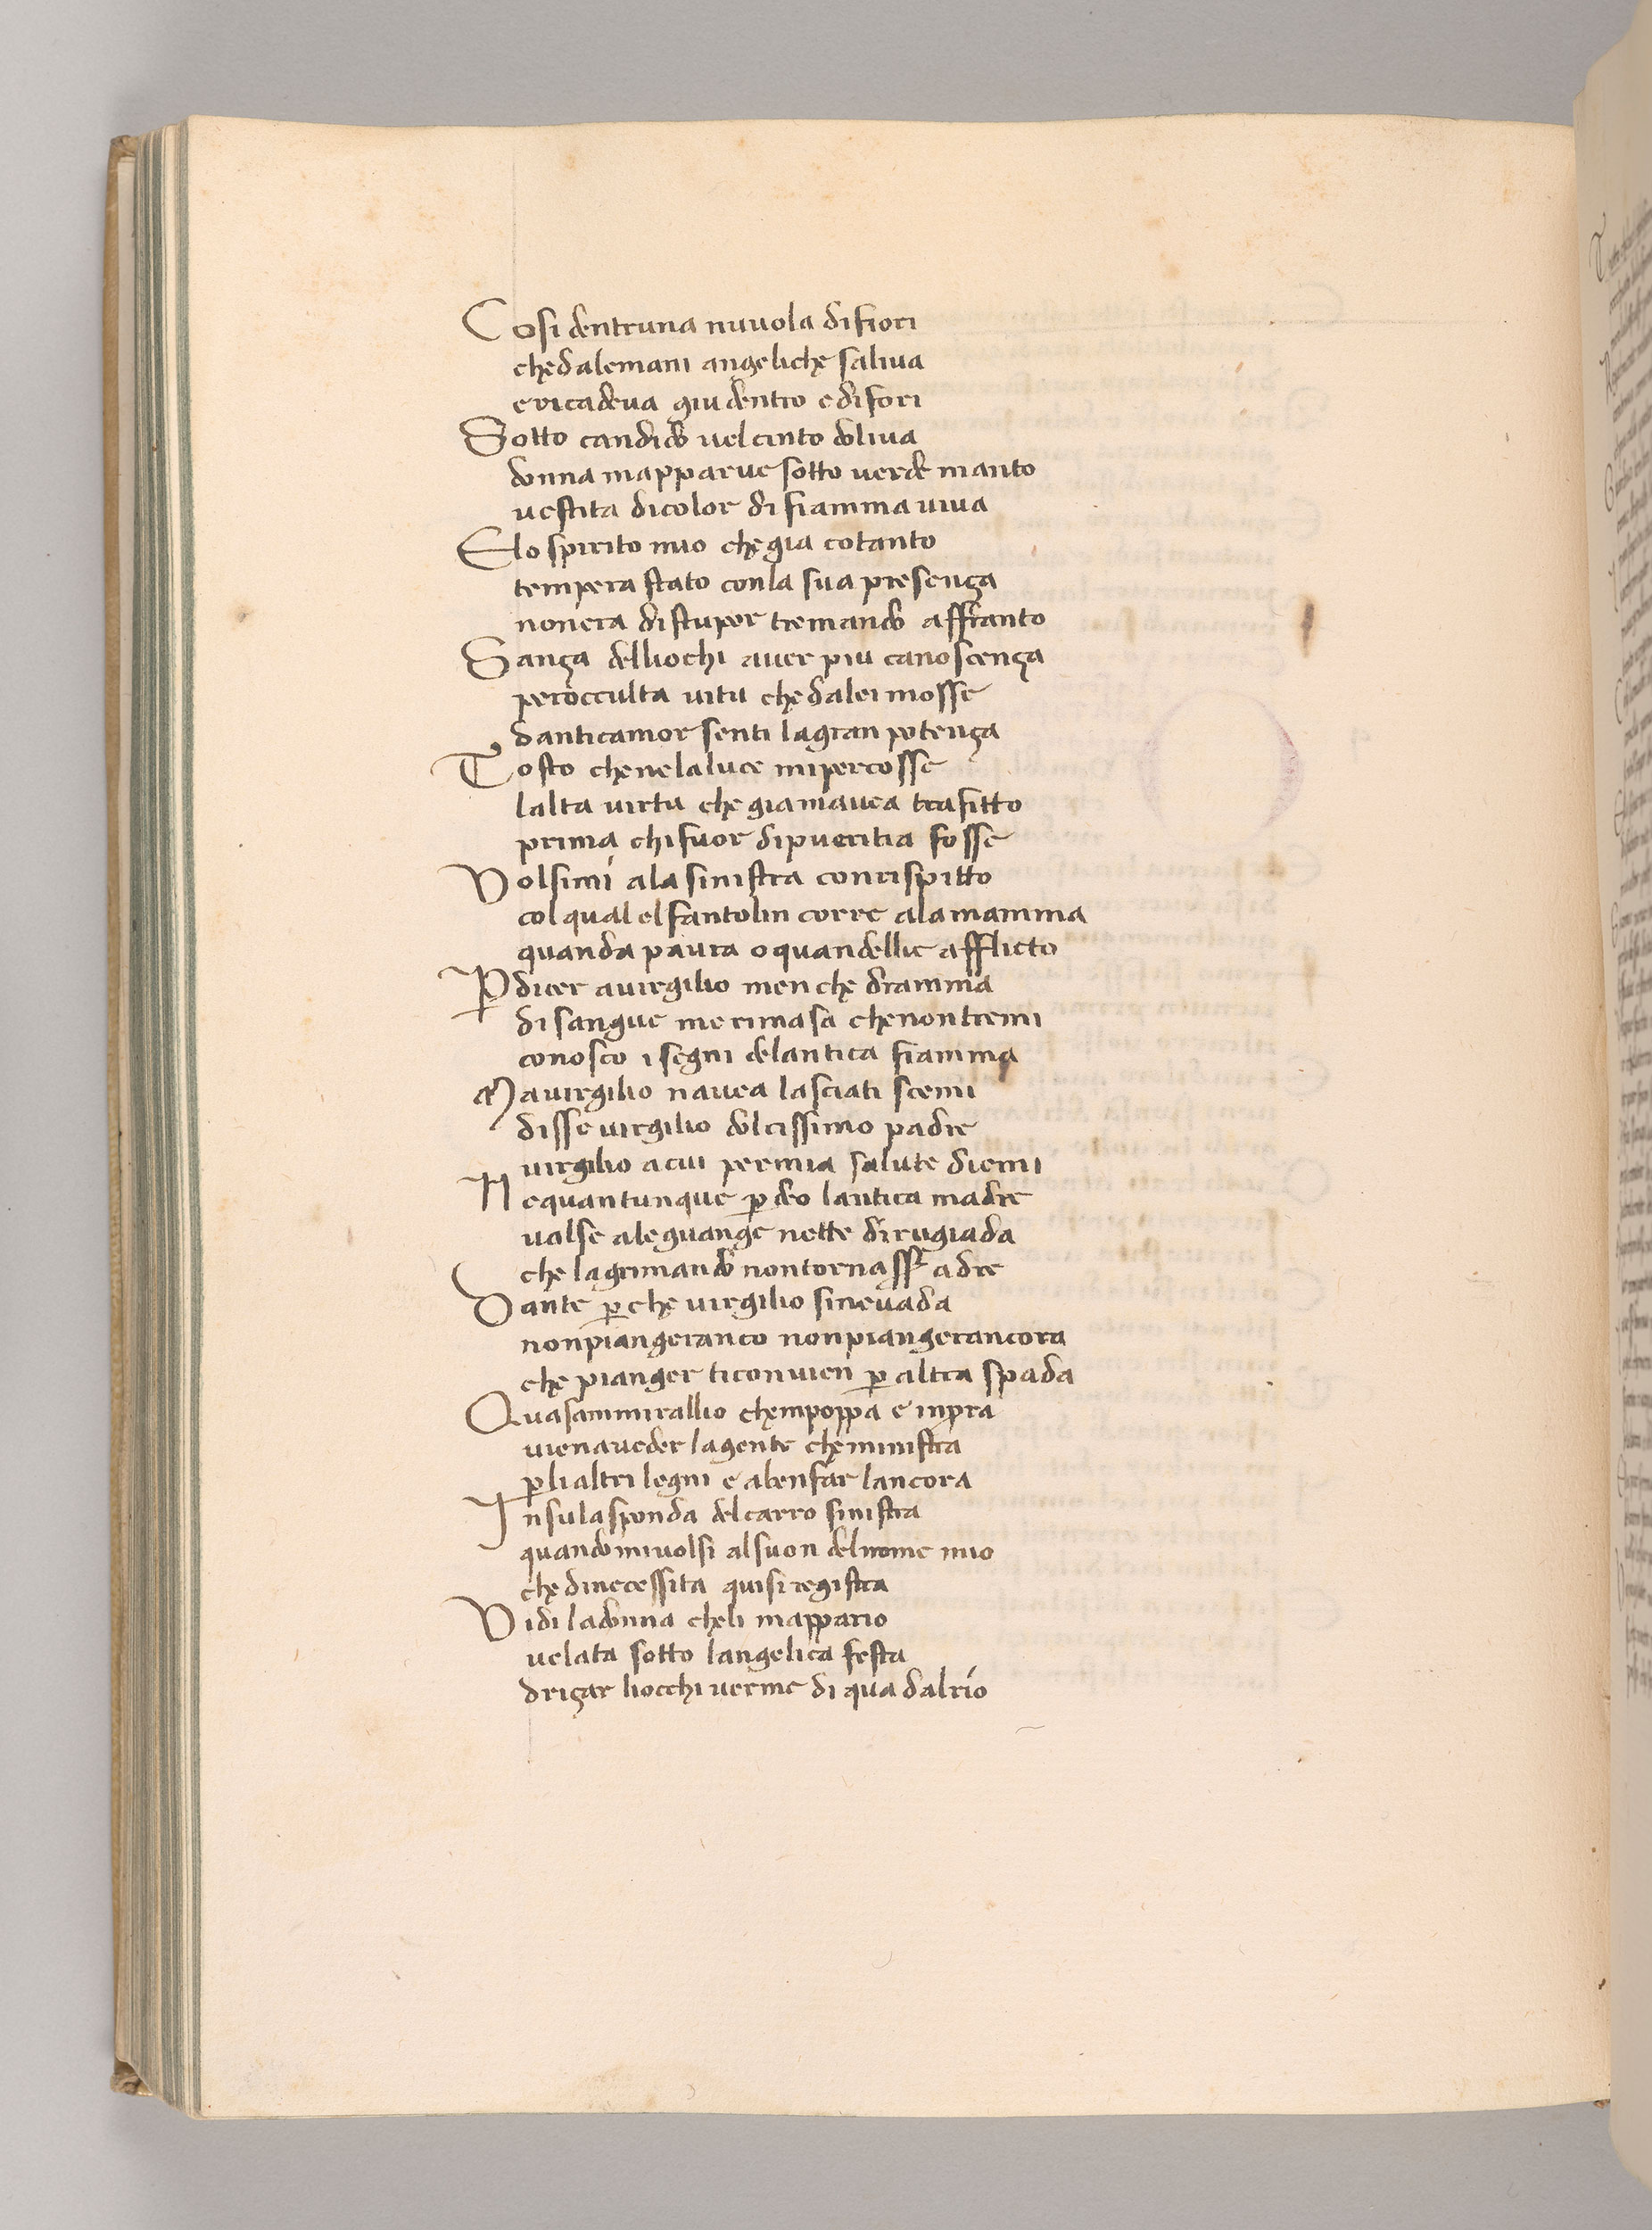 Cosi dentruna nuuola difiori
che dalemani angeliche saliua
ericadeua giu dentro edifori
Sotto candido uel cinto doliua
donna mapparue sotto uerde manto
uestita dicolor di fiamma uiua
Elo spirito mio che gia cotanto
tempera stato conla sua presença
nonera distupor tremando affranto
Sança delliochi auer piu canoscença
perocculta uitu che dalei mosse
danticamor senti lagran potença
Tosto chenelaluce mipercosse
lalta uirtu che giamauea trafitto
prima chi fuor dipueritia fosse
Volsimi ala sinistra conrispitto
col qual el fantolin corre ala mamma
quanda paura o quandellie afflicto
P dicer auirgilio men che dramma
di sangue me rimasa chenontremi
conosco i segni delantica fiamma
Ma uirgilio nauea lasciati scemi
disse uirgilio dolcissimo padre
uirgilio acui permia salute diemi
Nequantunque p deo lantica madre
ualse aleguançe nette dirugiada
che lagrimando nontornassr adre
Dante p che uirgilio sineuada
nonpiangeranco nonpiangerancora
che pianger ticonuien p altra spada
Quasammirallio chempoppa e inpra
uienaueder lagente cheministra
p lialtri legni e abenfar lancora
Insulasponda delcarro sinistra
quando miuolsi alsuon delnome mio
che dinecessita quisiregistra
Vidi ladonna cheli mappario
uelata sotto langelica festa
driçar liocchi uerme di qua dalrio